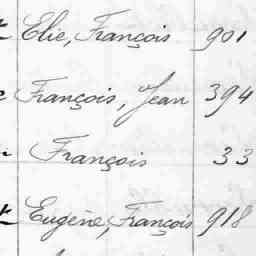 Elie, François 901
François, Jean 394
François 33
Eugène, François 918